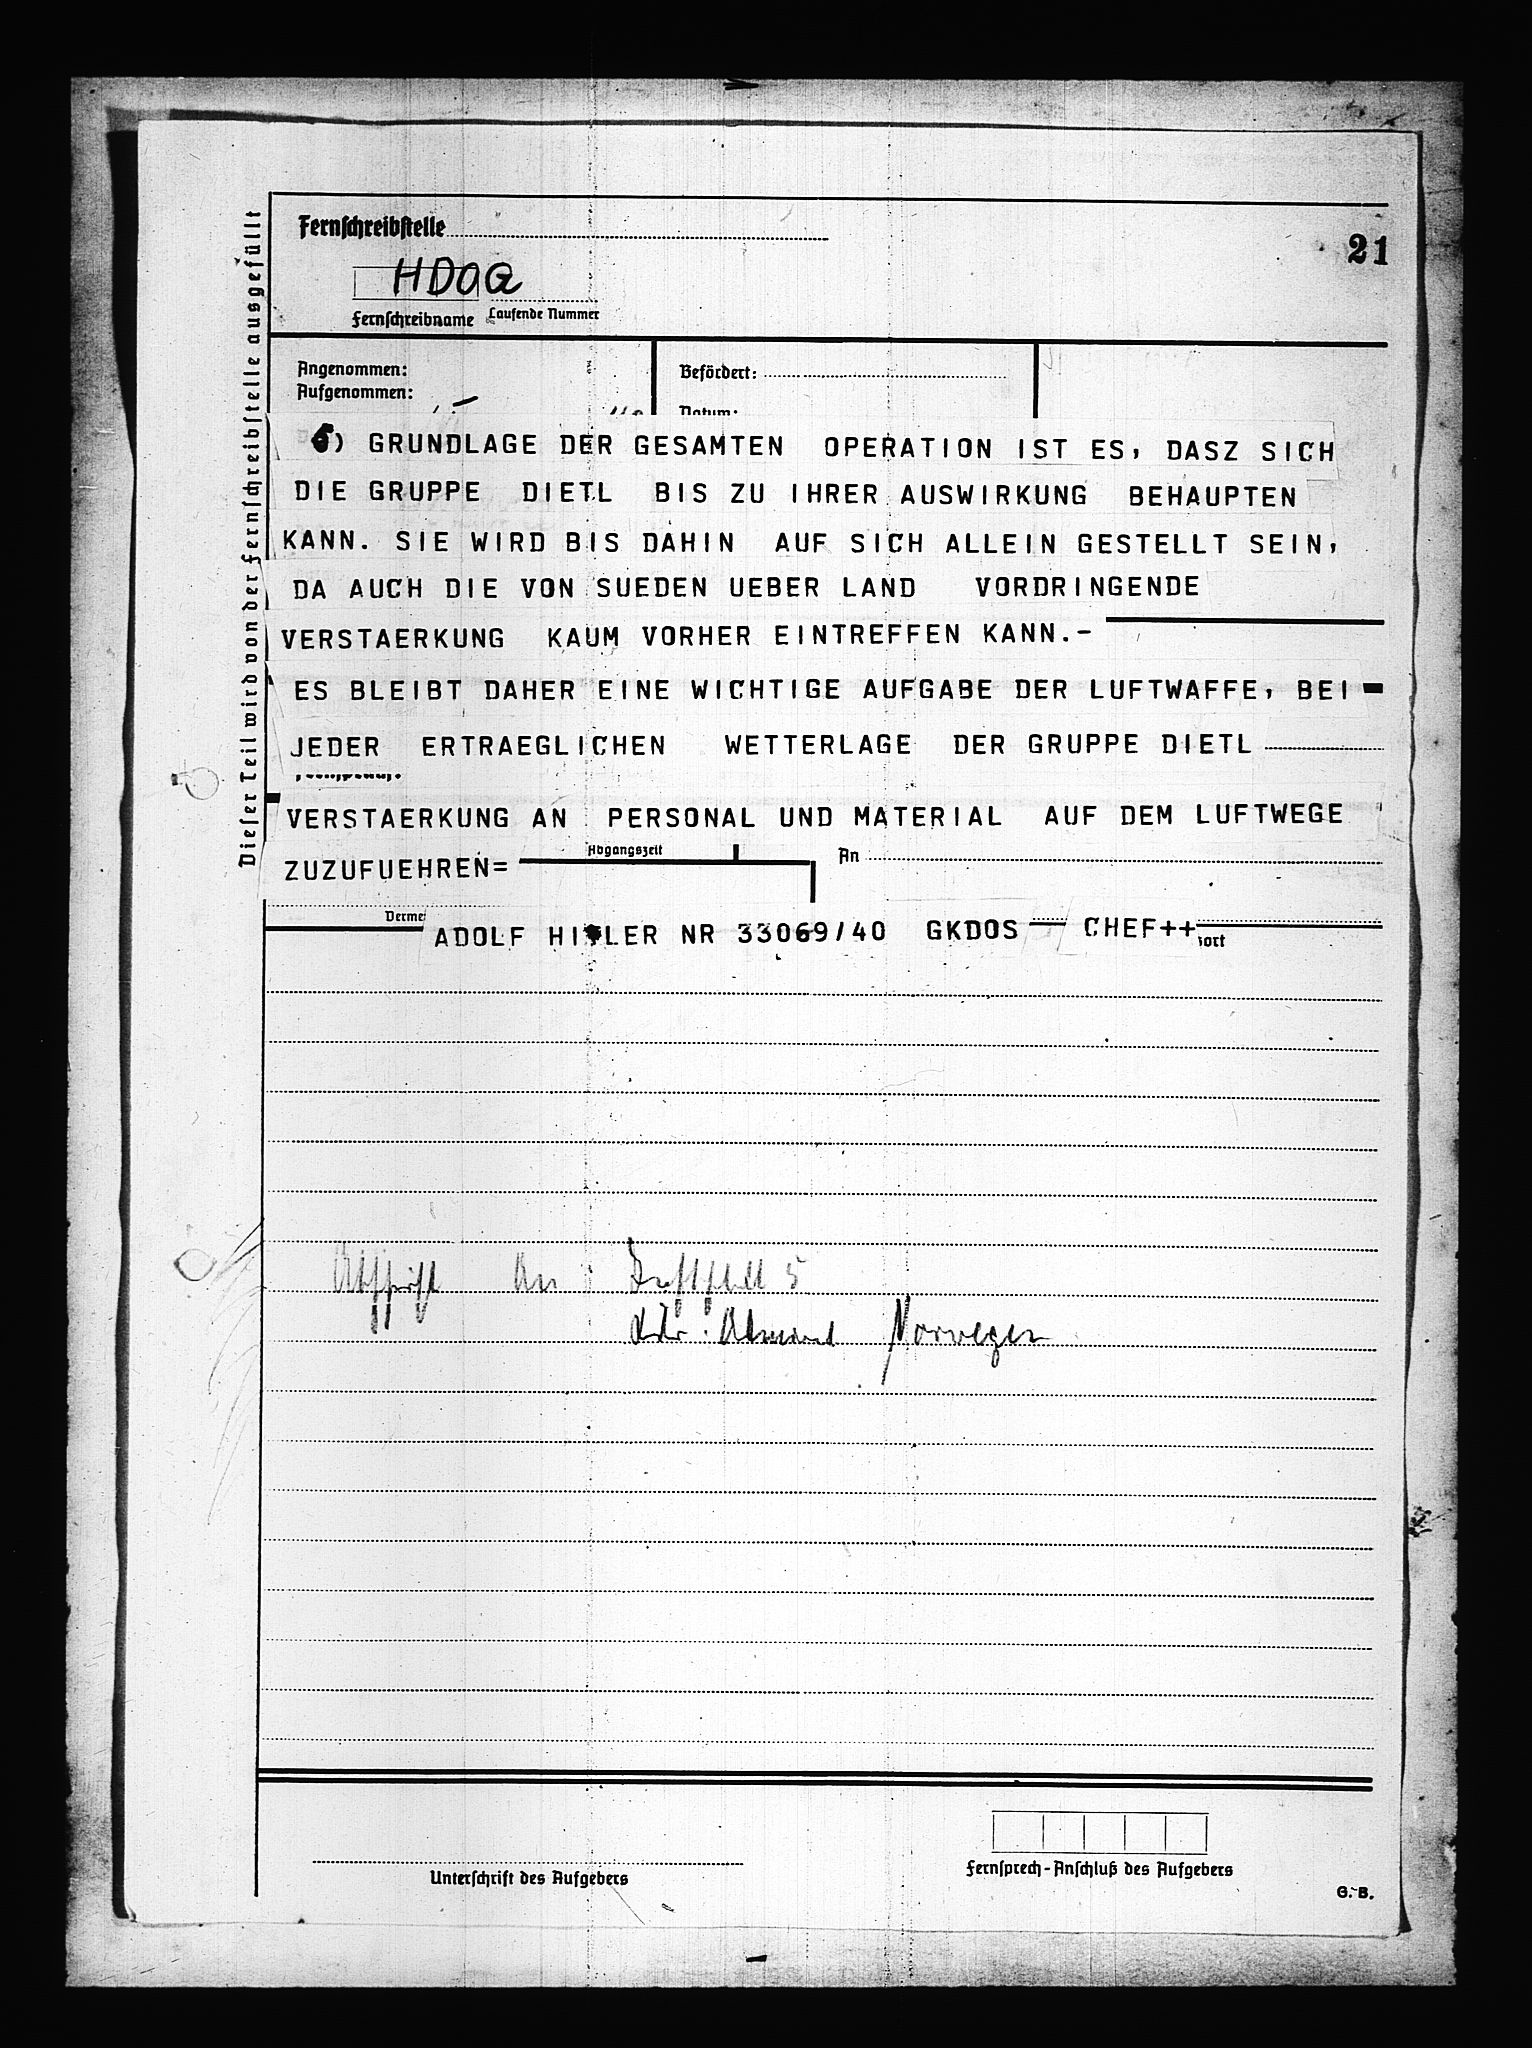 Fernschreibstelle
21
HDOG
Fernschreibname Laufende Nummer
Dieser Teil wird von der Fernschreibstelle ausgefüllt
Angenommen:
Aufgenommen:
Befördert:
Datum:
6) GRUNDLAGE DER GESAMTEN OPERATION IST ES, DASZ SICH
DIE GRUPPE DIETL BIS ZU IHRER AUSWIRKUNG BEHAUPTEN
KANN. SIE WIRD BIS DAHIN AUF SICH ALLEIN GESTELLT SEIN,
DA AUCH DIE VON SUEDEN UEBER LAND VORDRINGENDE
VERSTAERKUNG KAUM VORHER EINTREFFEN KANN.-
ES BLEIBT DAHER EINE WICHTIGE AUFGABE DER LUFTWAFFE, BEI
JEDER ERTRAEGLICHEN WETTERLAGE DER GRUPPE DIETL
VERSTAERKUNG AN PERSONAL UND MATERIAL AUF DEM LUFTWEGE
ZUZUFUEHREN=
Abgangszeit
An
Verme
ADOLF HITLER NR 33069/40 GKDOS CHEF++
ort
Abschrift an Luftflotte 5
Adm. Norwegen
Unterschrift des Aufgebers
Fernsprech-Anschluß des Aufgebers
G. B.